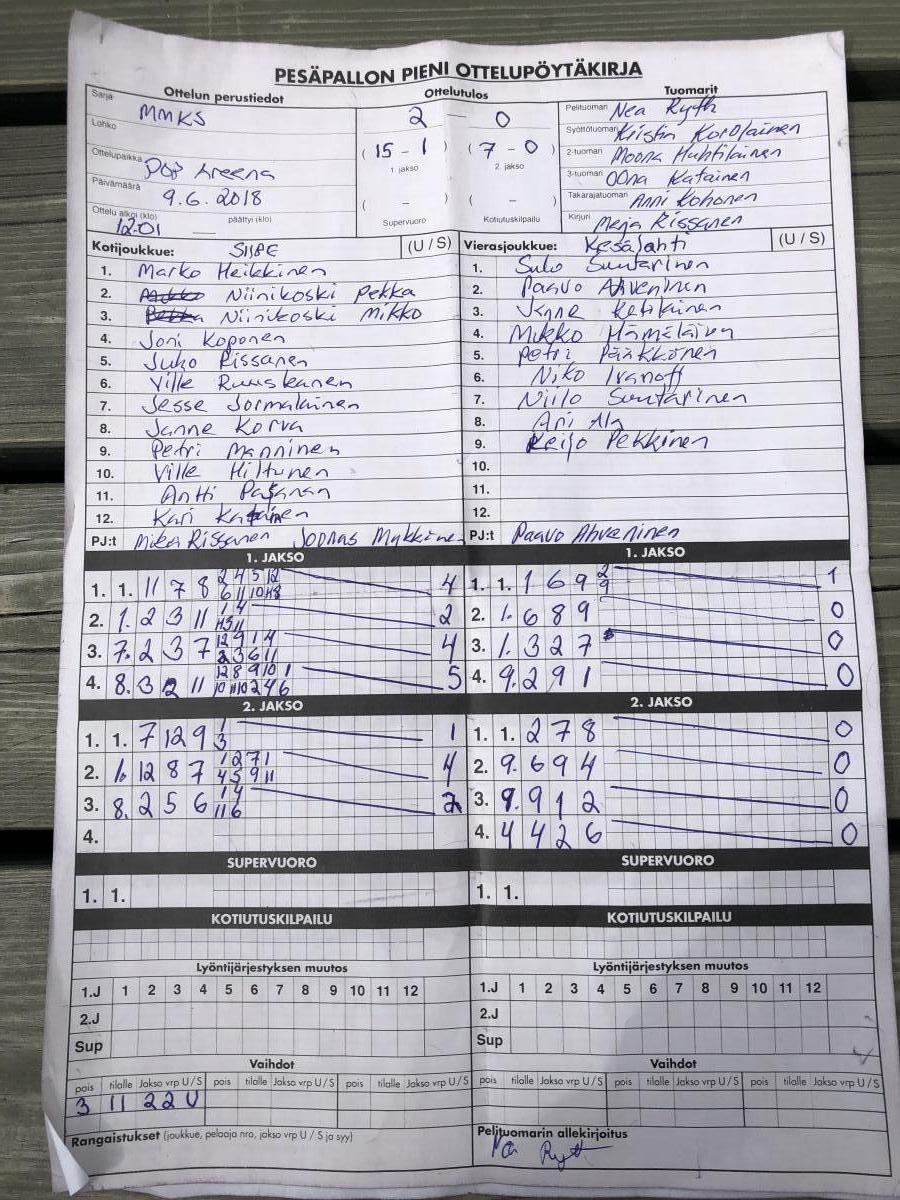 PESÄPALLON PIENI OTTELUPÖYTÄKIRJA
Ottelun perustiedot Ottelutulos Tuomarit
Sarja MMKS 2 — 0 Pelituomari Nea Ryth
Lohko Syöttötuomari Kristin Korolainen
Ottelupaikka POP Areena (15 - 1) (7 - 0) 2-tuomari Moona Huhtilainen
1. jakso 2. jakso 3-tuomari OOna Katainen
Päivämäärä 9.6.2018 ( - ) ( - ) Takarajatuomari Anni Kohonen
Ottelu alkoi (klo) 12.01 päättyi (klo) Supervuoro Kotiutuskilpailu Kirjuri Merja Rissanen
Kotijoukkue: SiiPE (U / S) Vierasjoukkue: Kesälahti (U / S)
1. Marko Heikkinen 1. Sulo Suutarinen
2. Niinikoski Pekka 2. Paavo Ahveninen
3. Niinikoski Mikko 3. Janne Ketikinen
4. Joni Koponen 4. Mikko Hämäläinen
5. Juho Rissanen 5. Petri Pääkkönen
6. Ville Ruuskanen 6. Niko Ivanoff
7. Jesse Jormalainen 7. Niilo Suutarinen
8. Janne Korva 8. Ari
9. Petri Manninen 9. Keijo Pekkinen
10. Ville Hiltunen 10.
11. Antti Pasanan 11.
12. Kari 12.
PJ:t Mika Rissanen Joonas Mykkinen PJ:t Paavo Ahveninen
1. JAKSO 1. JAKSO
1. 1. 11 7 8 2 4 5 12 4 1. 1. 1 6 9 2 1
6 11 10 9
2. 1. 2 3 11 1 4 2 2. 1. 6 8 9 0
3. 7. 2 3 7 12 9 1 4 4 3. 1. 3 2 7 0
2 3 6 11
4. 8. 3 2 11 12 8 9 10 1 5 4. 9. 2 9 1 0
10 11 10 2 4 6
2. JAKSO 2. JAKSO
1. 1. 7 12 9 1 1 1. 1. 2 7 8 0
3
2. 1. 12 8 7 1 2 7 1 4 2. 9. 6 9 4 0
4 5 9 11
3. 8. 2 5 6 1 4 2 3. 9. 9 1 2 0
11 6
4. 4. 4 4 2 6 0
SUPERVUORO SUPERVUORO
1. 1. 1. 1.
KOTIUTUSKILPAILU KOTIUTUSKILPAILU
Lyöntijärjestyksen muutos Lyöntijärjestyksen muutos
1.J 1 2 3 4 5 6 7 8 9 10 11 12 1.J 1 2 3 4 5 6 7 8 9 10 11 12
2.J 2.J
Sup Sup
Vaihdot Vaihdot
pois tilalle Jakso vrp U / S pois tilalle Jakso vrp U / S pois tilalle Jakso vrp U / S pois tilalle Jakso vrp U / S pois tilalle Jakso vrp U / S pois tilalle Jakso vrp U / S
3 11 2 2 U
Rangaistukset (joukkue, pelaaja nro, jakso vrp U / S ja syy) Pelituomarin allekirjoitus